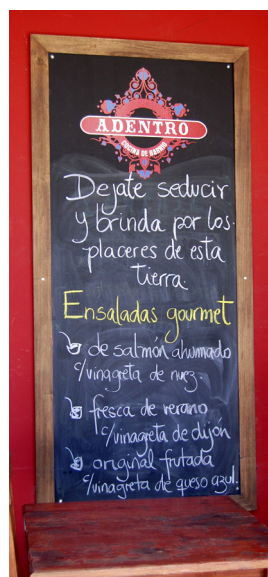 ADENTRO
COCINA DE BARRIO
Dejate seducir
y brinda por los
placeres de esta
tierra.
Ensaladas gourmet
de salmón ahumado
c/vinagreta de nuez.
fresca de verano
c/vinagreta de dijon
original frutada
c/vinagreta de queso azul.